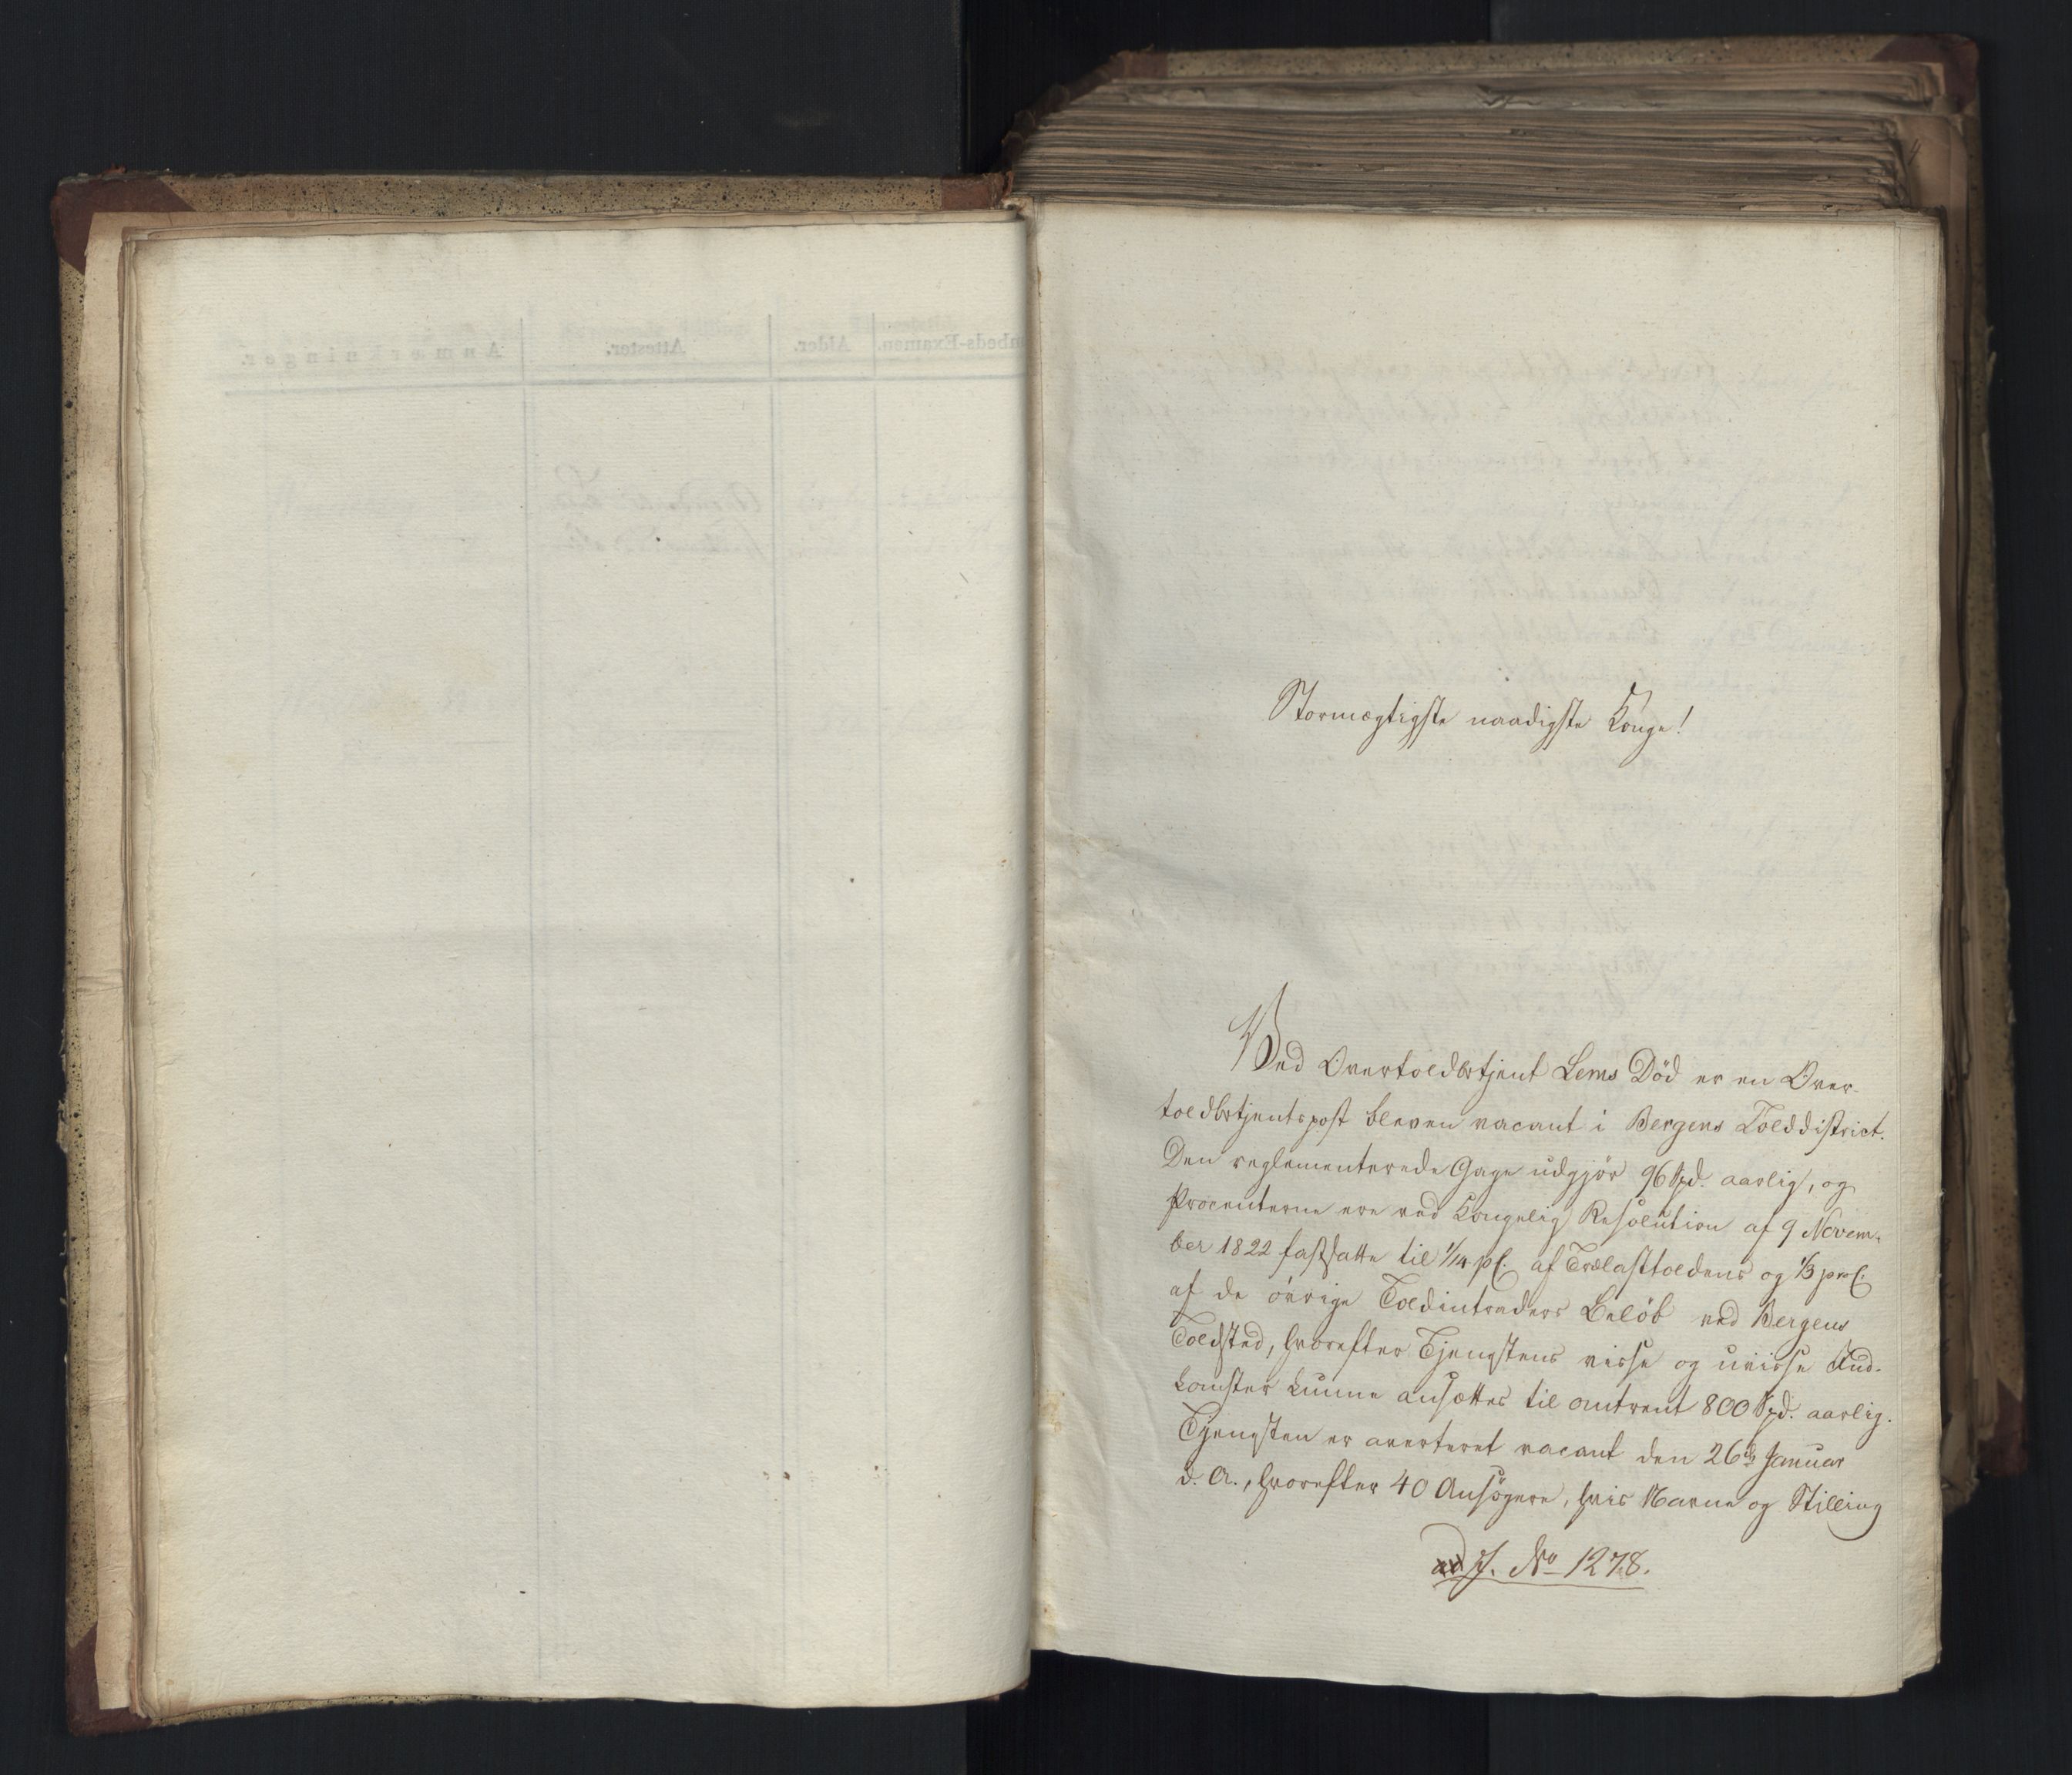 Stormægtigste naadigste Konge!
Ved Overtoldbetjent Lems Död er en Over-
toldbetjentspost bleven vacant i Bergens Tolddistrict.
Den reglementerede Gage udgjör 96 Spd. aarlig, og
Procenterne ere ved Kongelig Resolution af 9 Novem-
ber 1822 fastsatte til 1/14 pC. af Trælasttoldens og 1/3 proC.
af de övrige Toldintraders Belöb ved Bergens
Toldsted, hvorefter Tjenestens visse og uvisse Ind-
komster kunne ansættes til omtrent 800 Spd. aarlig.
Tjenesten er averteret vacant den 26de Januar
d. A., hvorefter 40 Ansögere, hvis Navne og Stilling
ad J. No 1278.